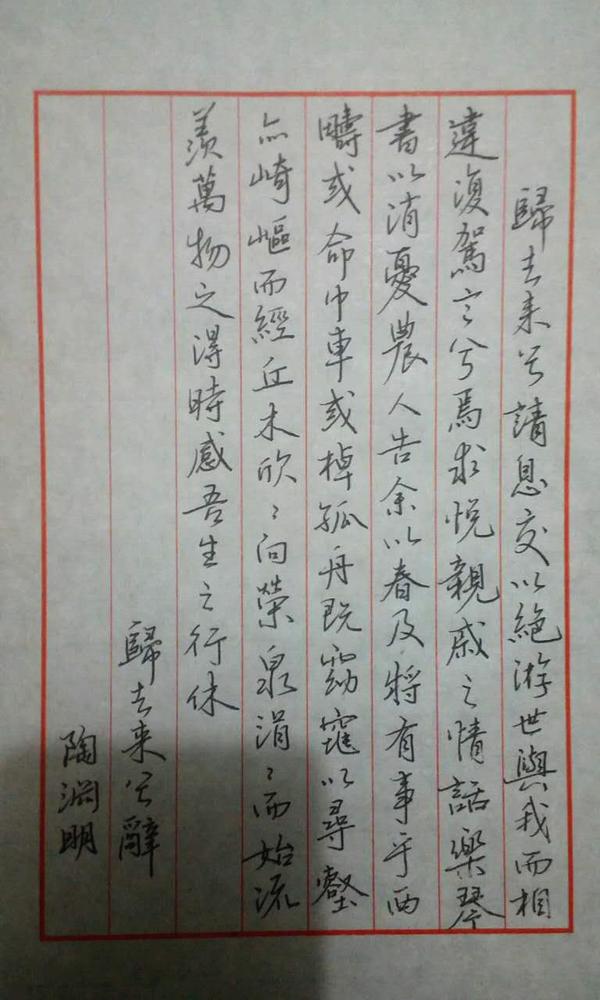 歸去来兮請息交以絶游世與我而相
違復駕言兮焉求悦親戚之情話樂琴
書以消憂農人告余以春及将有事于西
疇或命巾車或棹孤舟既窈窕以尋壑
亦崎嶇而經丘木欣〻向榮泉涓〻而始流
羨萬物之得時感吾生之行休
歸去来兮辭
陶淵明